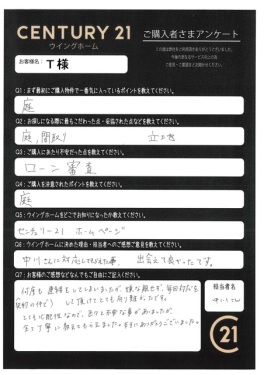 CENTURY 21
ウイングホーム
ご購入者さまアンケート
お客様名：
T様
Q1：まず最初にご購入物件で一番気に入っているポイントを教えてください。
庭
Q2：お探しになる際に最もこだわった点・妥協された点などを教えてください。
庭、間取り 立地
Q3：ご購入にあたり不安だった点を教えてください。
ローン審査
Q4：ご購入を決意されたポイントを教えてください。
庭
Q5：ウイングホームをどこでお知りになったか教えてください。
センチュリー21 ホームページ
Q6：ウイングホームに決めた理由・担当者へのご感想ご意見を教えてください。
中川さんに対応してもらえた事。 出会えて良かったです。
Q7：お客様のご感想などなんでもご自由にご記入ください。
何度も連絡をしてしまいましたが、嫌な顔せず、毎回対応を
して頂けてとても有り難かったです。
とても心配性なので、色々と不安な事がありましたが、
全て丁寧に教えてもらえました。本当にありがとうございました。
担当者名
21